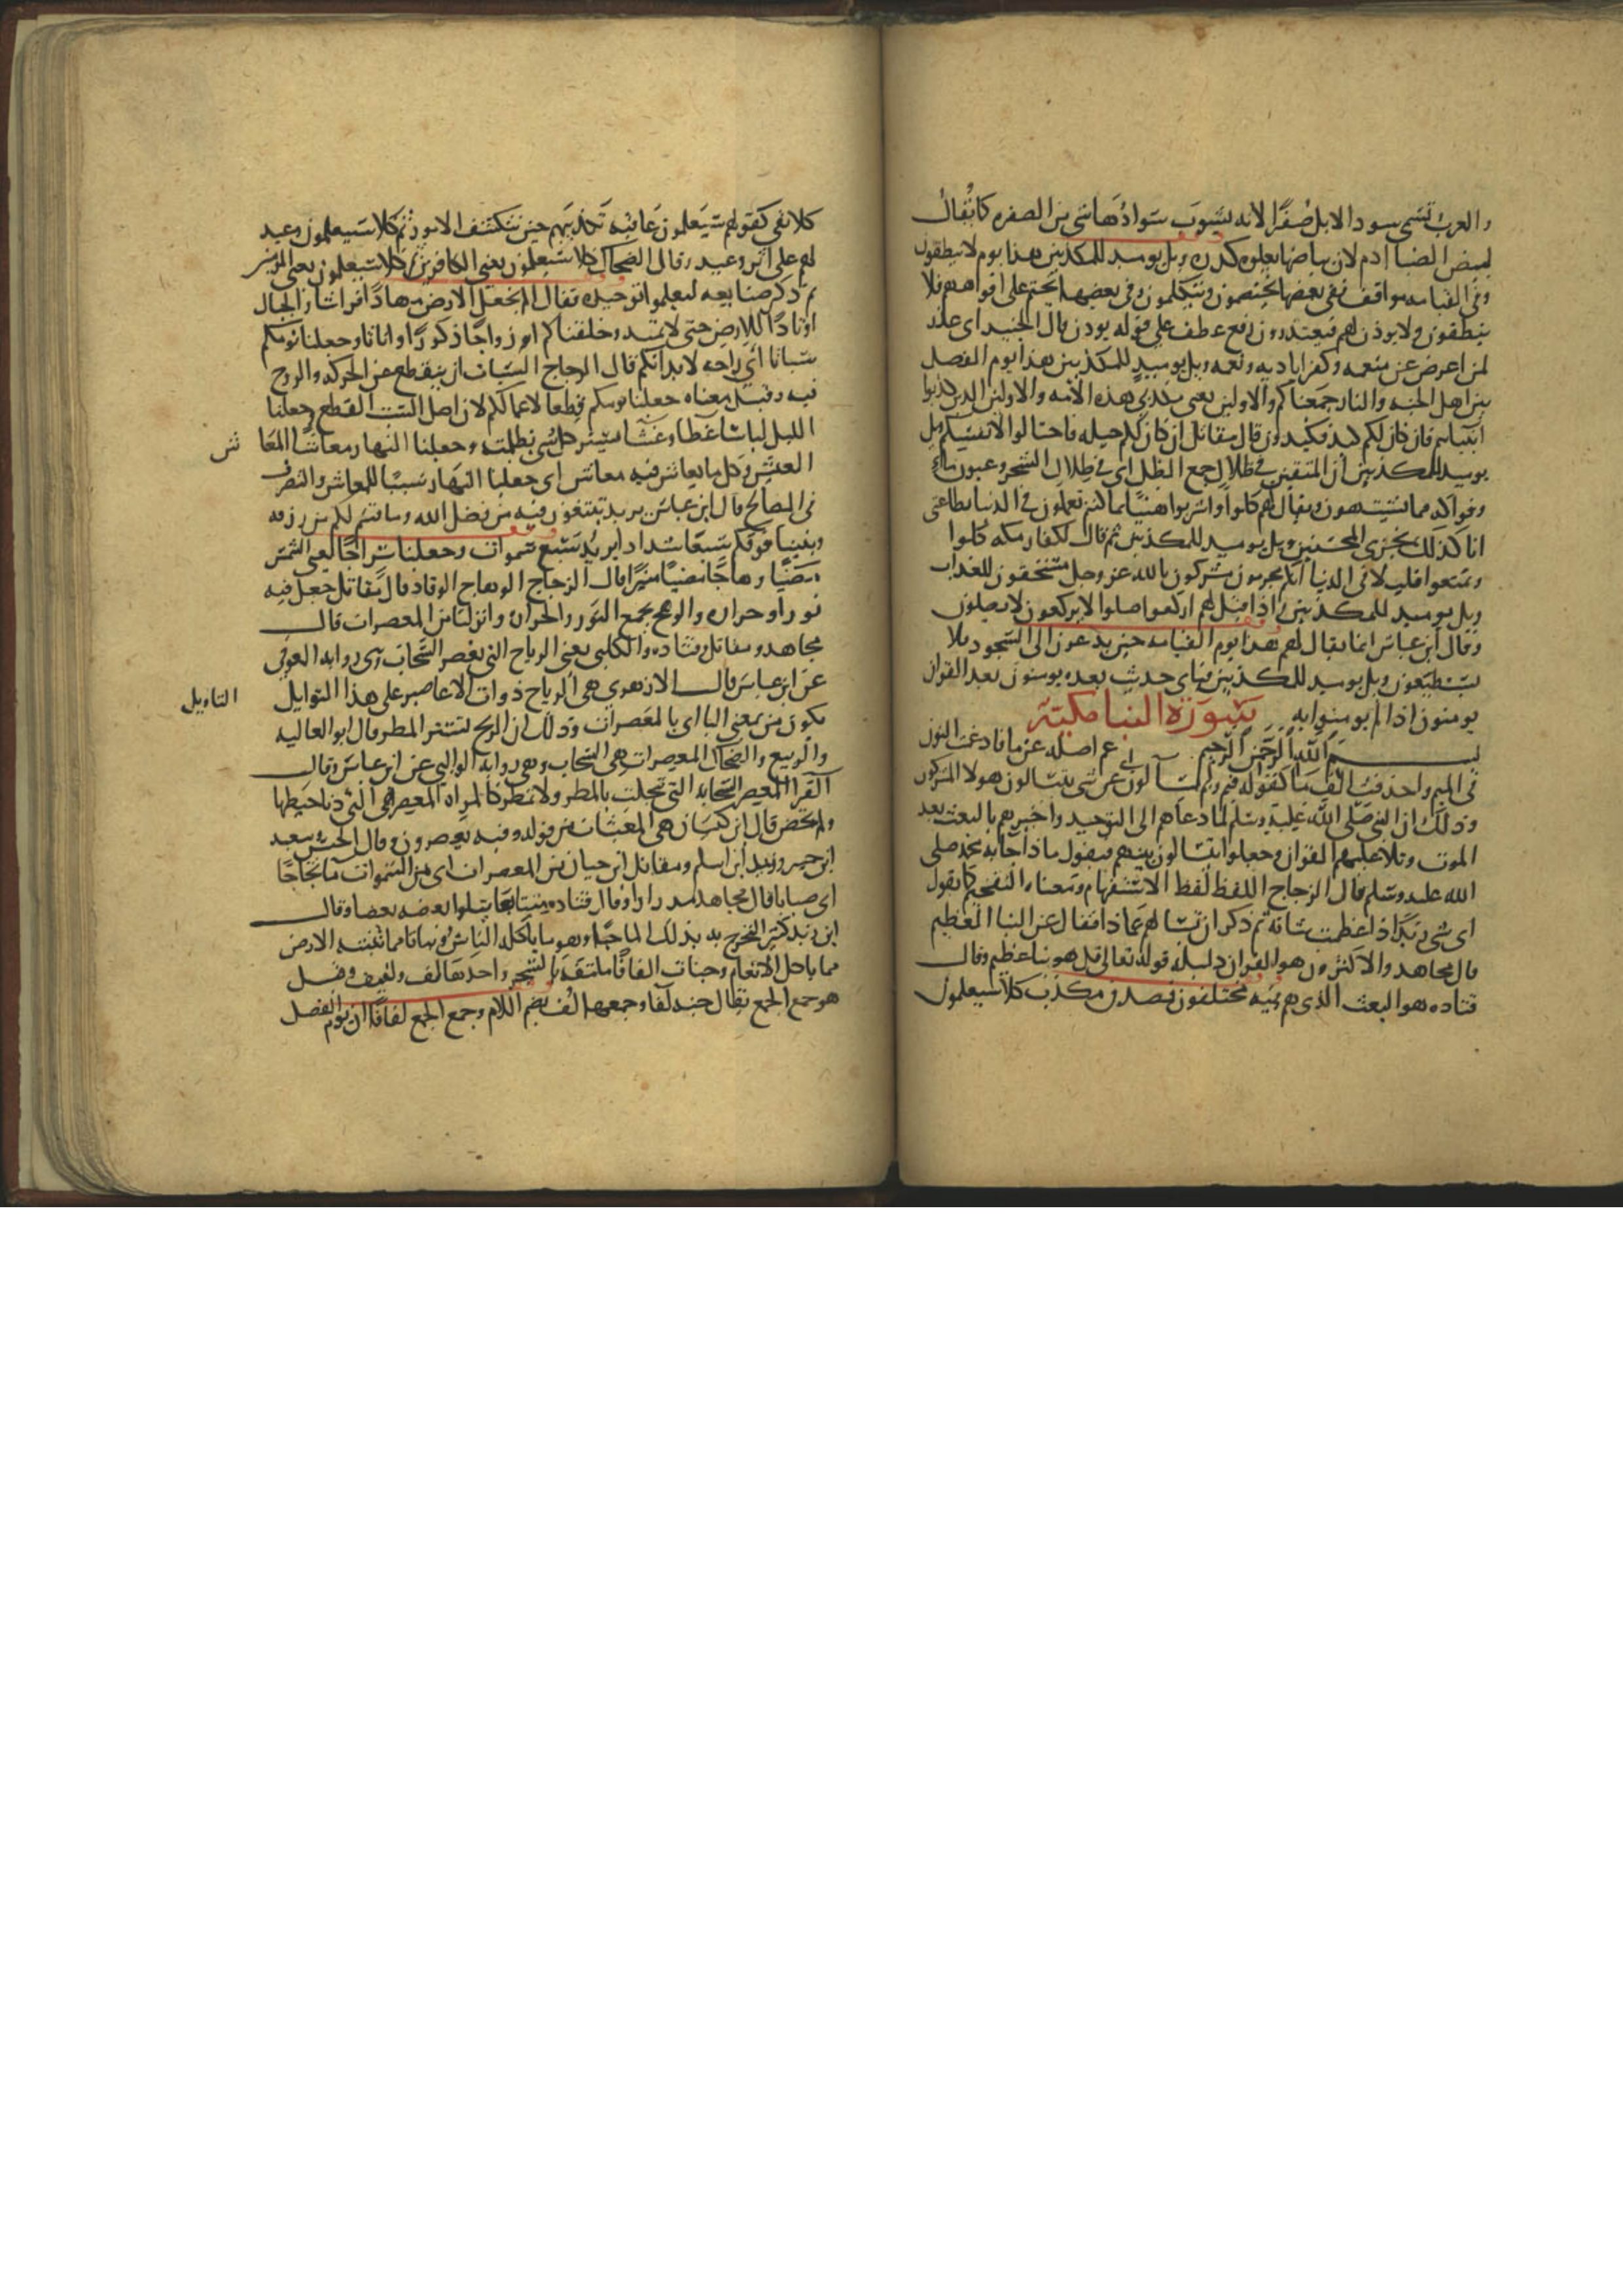 والعرب تسمى سود الابل صفرا لانه يشوب سوادها شى من الصفره كما يقال
لبيض الضبا ادم لان بياضها يعلوه كدره ويل يوميد للمكذبين هذا يوم لا ينطقون
وفى القيامه مواقف ففى بعضها يختصمون ويتكلمون وفى بعضها يختم على افواههم فلا
ينطقون ولا يوذن لهم فيعتذرون رفع عطف على قوله يوذن قال الجنيد اى عذر
لمن اعرض عن منعمه وكفر اياديه ونعمه ويل يوميد للمكذبين هذا يوم الفصل
بين اهل الجنه والنار جمعناكم والاولين يعنى مكذبى هذه الامه والاولين الذين كذبوا
انبياهم فان كان لكم كيد فكيدون قال مقاتل ان كان لكم حيله فاحتالوا لانفسكم ويل
يوميد للمكذبين ان المتقين فى ظلال جمع الظل اى فى ظلال الشجر وعيون ماء
وفواكه مما يشتهون ويقال لهم كلوا واشربوا هنيا بما كنتم تعملون فى الدنيا بطاعتى
انا كذلك نجزى المحسنين ويل يوميد للمكذبين ثم قال لكفار مكه كلوا
وتمتعوا قليلا فى الدنيا انكم مجرمون مشركون بالله عز وجل مستحقون للعذاب
ويل يوميد للمكذبين واذا قيل لهم اركعوا صلوا لا يركعون لا يصلون
وقال ابن عباس انما يقال لهم هذا يوم القيامه حين يدعون الى السجود فلا
يستطيعون ويل يوميد للمكذبين فباى حديث بعده يومنون بعد القران
يومنون اذا لم يومنوا به سورة النبا مكية
بسم الله الرحمن الرحيم عم اصله عن ما فادغمت النون
فى الميم وحذفت الف ما كقوله فيم ولم يتسالون عن اى شى يتسالون هولا المشركون
وذلك ان النبى صلى الله عليه وسلم لما دعاهم الى التوحيد واخبرهم بالبعث بعد
الموت وتلا عليهم القران وجعلوا يتسالون بينهم فيقول ماذا جا به محمد صلى
الله عليه وسلم قال الزجاج اللفظ لفظ الاستفهام ومعناه التفخيم كما تقول
اى شى زيد اذا عظمت شانه ثم ذكر ان تسالهم عما ذا فقال عن النبا العظيم
قال مجاهد والاكثرون هو القران دليله قوله تعالى قل هو نبا عظيم وقال
قتاده هو البعث الذى هم فيه مختلفون فمصدق ومكذب كلا سيعلمون
كلا نفى لقولهم سيعلمون عاقبه تكذيبهم حين تنكشف الامور ثم كلا سيعلمون وعيد
لهم على اثر وعيد وقال الضحاك كلا سيعلمون يعنى الكافرين ثم كلا سيعلمون يعنى المومنين
ثم ذكر صنايعه ليعلموا توحيده فقال الم نجعل الارض مهادا فراشا والجبال
اوتادا للارض حتى لا تميد وخلقناكم ازواجا ذكورا واناثا وجعلنا نومكم
سباتا اى راحه لابدانكم قال الزجاج السبات ان ينقطع عن الحركه والروح
فيه وقيل معناه جعلنا نومكم قطعا لاعمالكم لان اصل السبت القطع وجعلنا
الليل لباسا غطا وغشا يستر كل شى بظلمته وجعلنا النهار معاشا المعا
ش
العيش وكل ما يعاش فيه معاش اى جعلنا النهار سببا للمعاش والتصرف
فى المصالح قال ابن عباس يريد تبتغون فيه من فضل الله وما قسم لكم من رزقه
وبنينا فوقكم سبعا شدادا يريد سبع سموات وجعلنا سراجا يعنى الشمس
وهاجا مضيا منيرا قال الزجاج الوهاج الوقاد قال مقاتل جعل فيه
نورا وحراره والوهج يجمع النور والحراره وانزلنا من المعصرات قال
مجاهد ومقاتل وقتاده والكلبى يعنى الرياح التى تعصر السحاب وهى روايه العوفى
عن ابن عباس قال الازهرى هى الرياح ذوات الاعاصير على هذا التوايل
التاويل
يكون من بمعنى البا اى بالمعصرات وذلك ان الريح تستدر المطر قال ابو العاليه
والربيع والضحاك المعصرات هى السحاب وهى روايه الوالبى عن ابن عباس وقال
الفرا المعصر السحابه التى تحلبت بالمطر ولا تمطر كالمراه المعصر هى التى دنا حيضها
ولم تحض قال ابن كيسان هى المغيثات من قوله وفيه يعصرون وقال الحسن وسعيد
ابن جبير وزيد ابن اسلم ومقاتل ابن حيان من المعصرات اى من السموات ما ثجاجا
اى صبابا قال مجاهد مدرارا وقال قتاده متتابعا يتلوا بعضه بعضا وقال
ابن زيد كثيرا لنخرج به بذلك الما حبا وهو ما ياكله الناس ونباتا مما تنبته الارض
مما ياكل الانعام وجنات الفافا ملتفة بالشجر واحدها لف ولفيف وقيل
هو جمع الجمع يقال جنه لفا وجمعها لف بضم اللام وجمع الجمع لفافا ان يوم الفصل